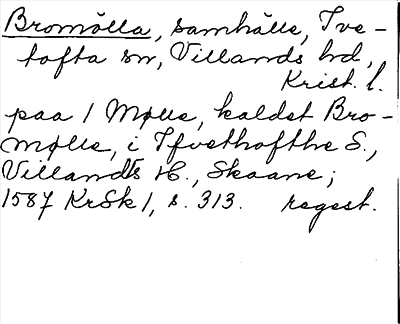 Bromölla, samhälle, Ive-
tofta sn, Villands hd,
Krist. l.
paa 1 Mølle, kaldet Bro-
mølle, i Ifvethofthe S.,
Villands H., Skaane;
1587 KrSk 1, s. 313. regest.